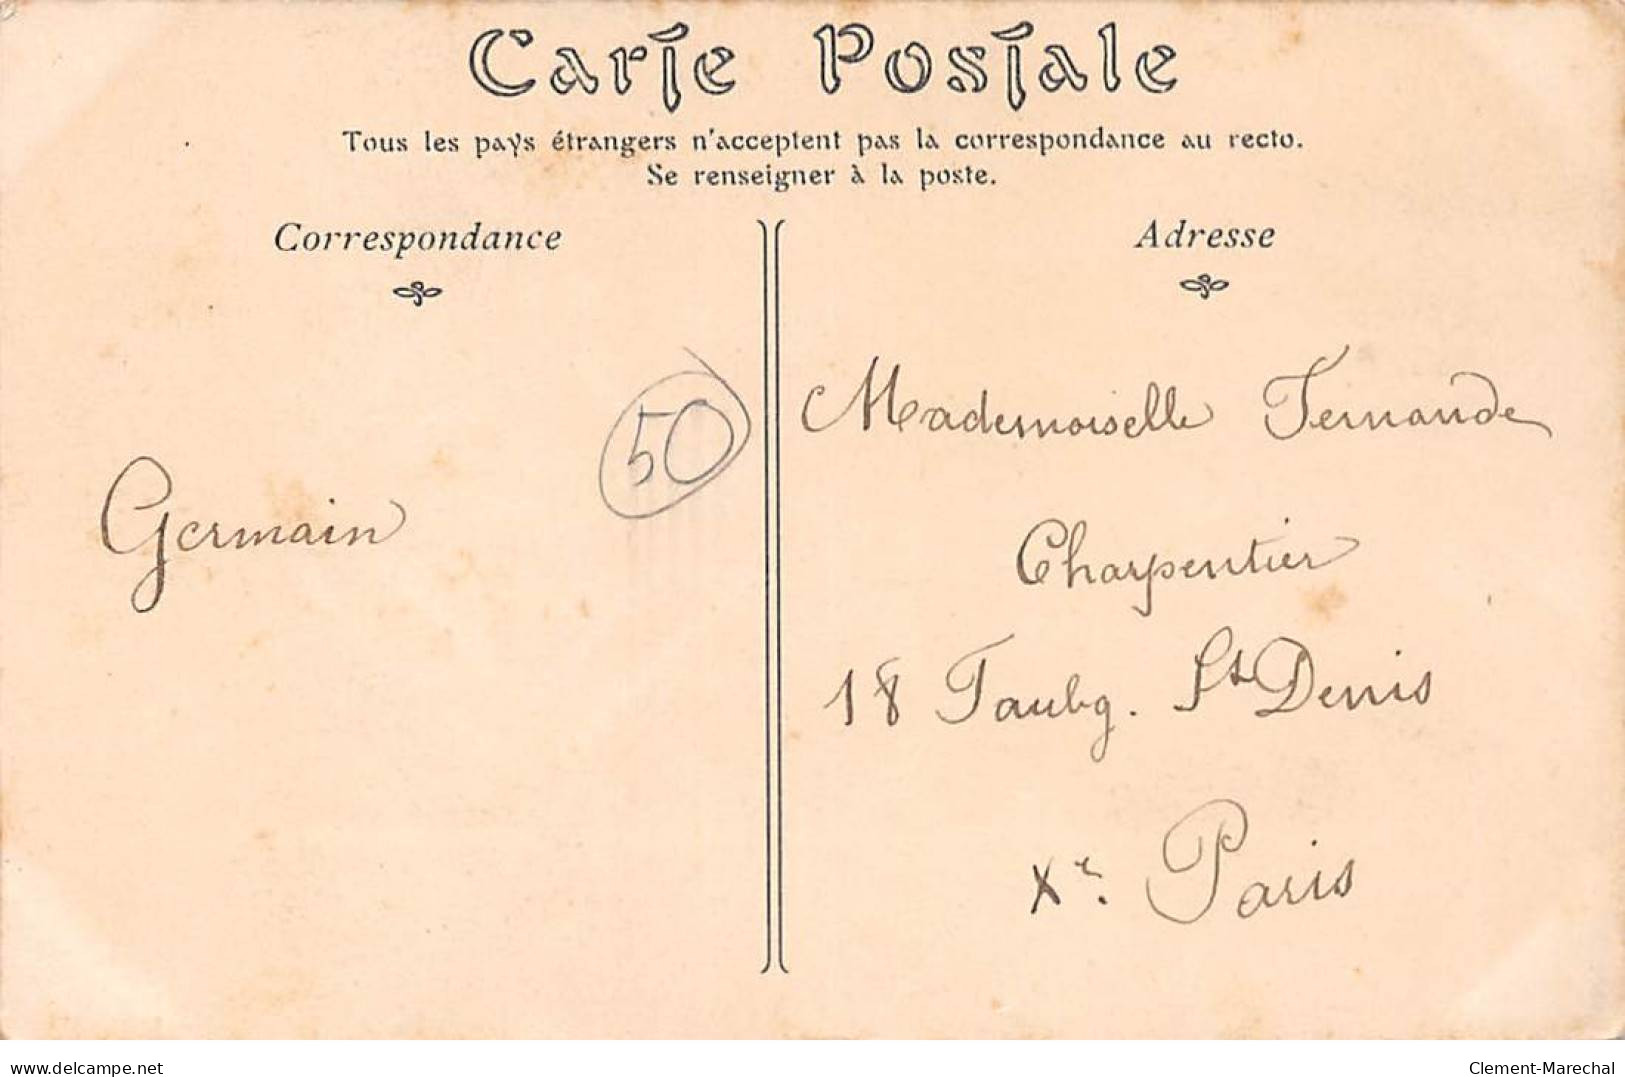 Carte Postale
Tous les pays étrangers n'acceptent pas la correspondance au recto.
Se renseigner à la poste.
Correspondance
Germain
50
Adresse
Mademoiselle Fernande
Charpentier
18 Faubg. St Denis
Xe. Paris
delcampe.net
Clement-Marechal